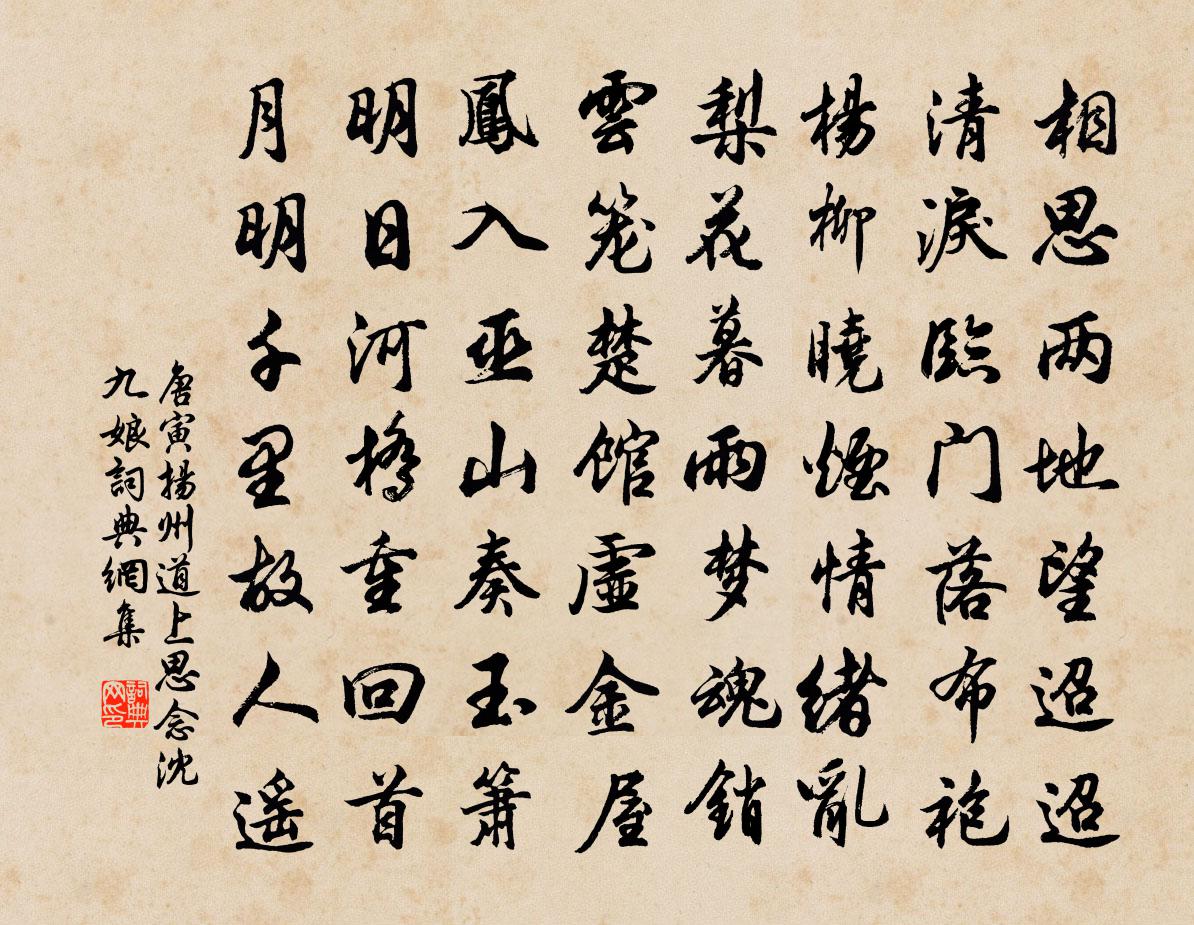 相思两地望迢迢
清淚臨门落布袍
楊柳曉煙情緒亂
梨花暮雨梦魂銷
雲笼楚館虛金屋
鳳入巫山奏玉簫
明日河橋重回首
月明千里故人遥
唐寅揚州道上思念沈
九娘詞典網集
詞典
网印